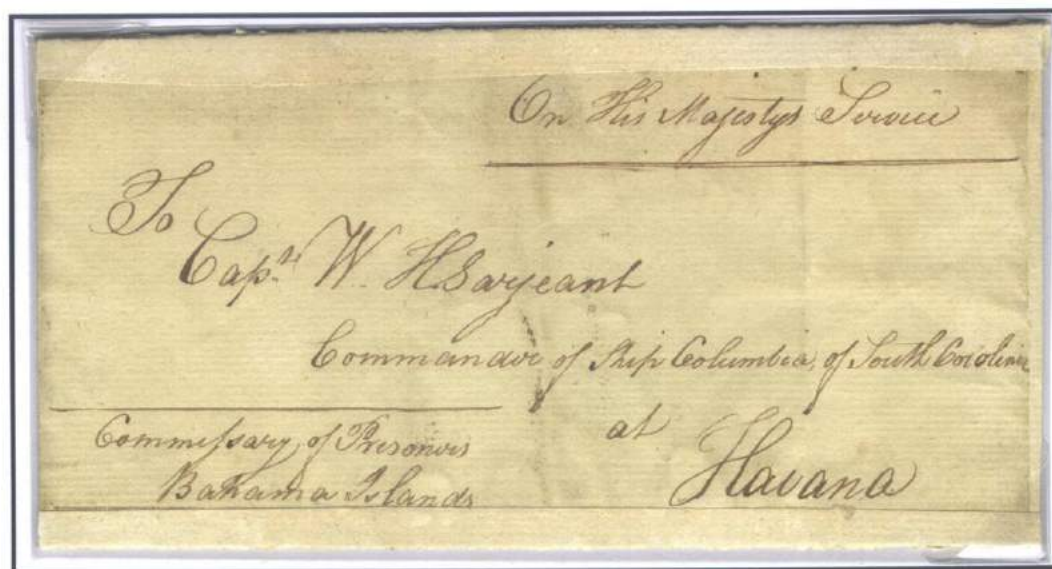 On His Majestys Service
To
Capt. W. H Sarjeant
Commander of Ship Columbia, of South Carolina
at
Havana
Commissary of Prisoners
Bahama Islands